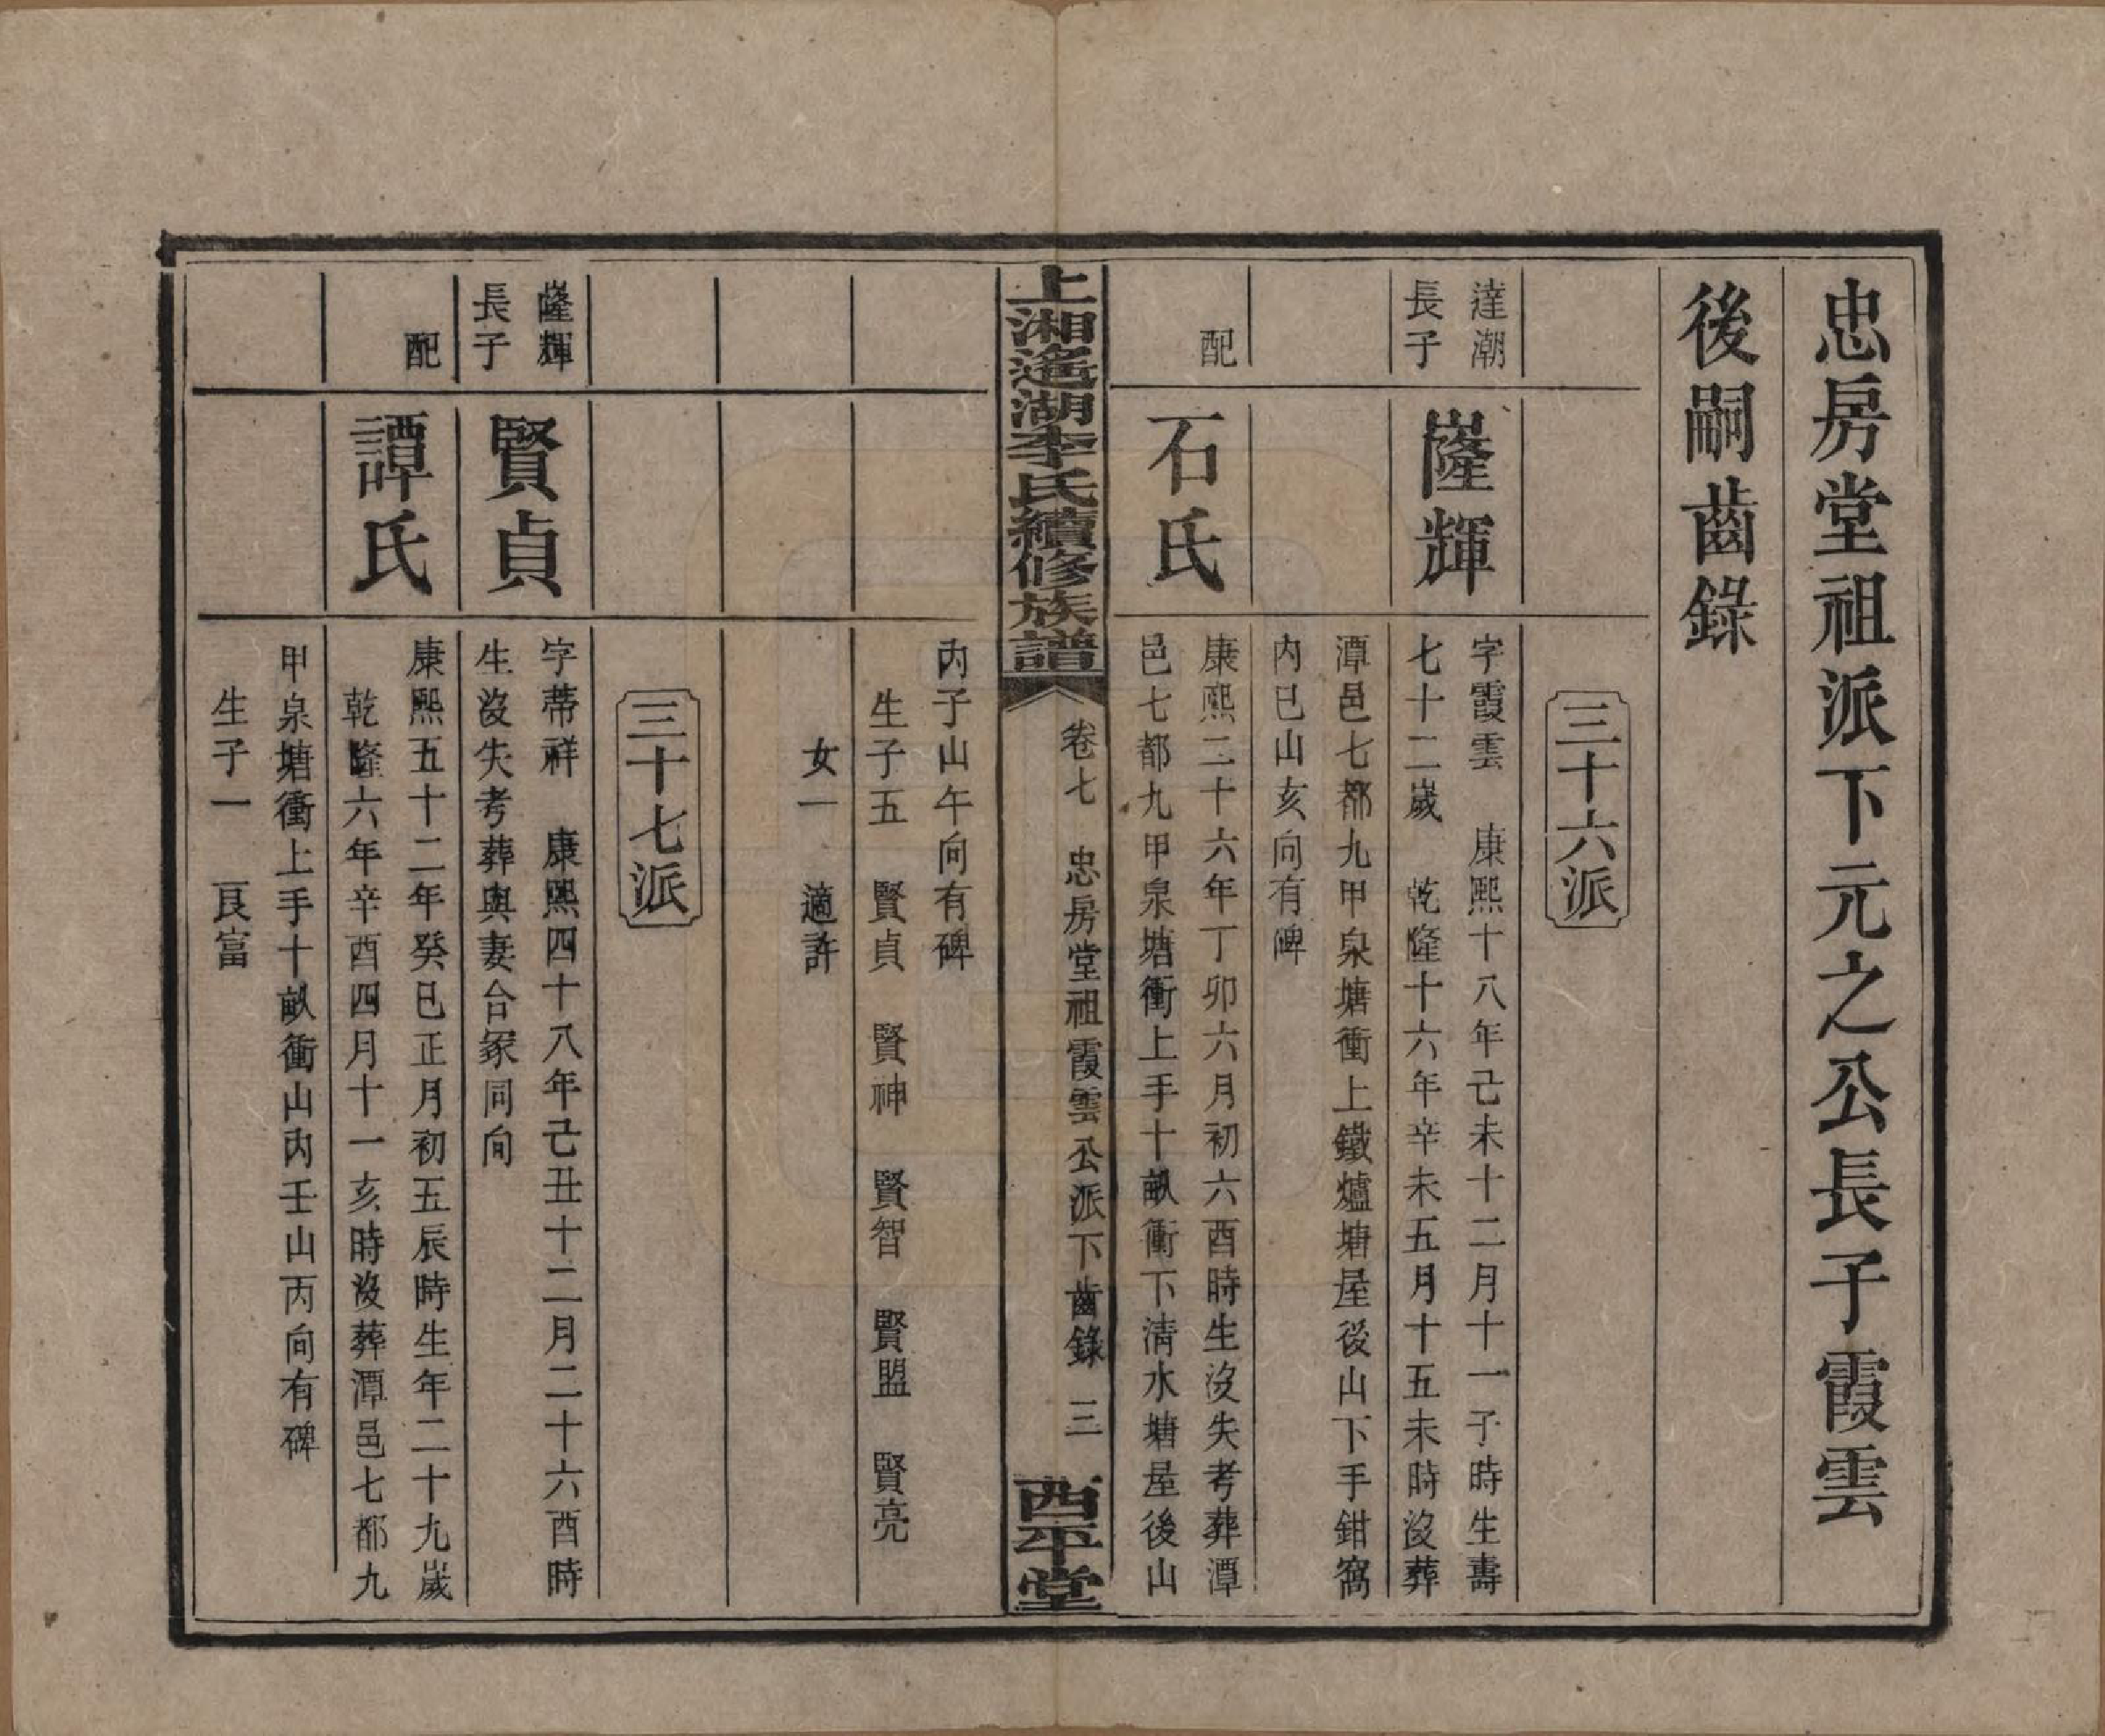 忠房堂祖派下元之公長子霞雲
後嗣齒錄
三十六派
達潮
長子
嶐輝
字霞雲 康熙十八年己未十二月十一子時生壽
七十二嵗 乾隆十六年辛未五月十五未時沒葬
潭邑七都九甲泉塘衝上鐵爐塘屋後山下手鉗窩
內巳山亥向有碑
配
石氏
康熙二十六年丁卯六月初六酉時生沒失考葬潭
邑七都九甲泉塘衝上手十畝衝下清水塘屋後山
上湘遙湖李氏續修族譜
卷七 忠房堂祖霞雲公派下齒錄 三
西平堂
丙子山午向有碑
生子五 賢貞 賢神 賢智 賢盟 賢亮
女一 適許
三十七派
嶐輝
長子
賢貞
字蒂祥 康熙四十八年己丑十二月二十六酉時
生沒失考葬與妻合冢同向
配
譚氏
康熙五十二年癸巳正月初五辰時生年二十九嵗
乾隆六年辛酉四月十一亥時沒葬潭邑七都九
甲泉塘衝上手十畝衝山內壬山丙向有碑
生子一 艮富